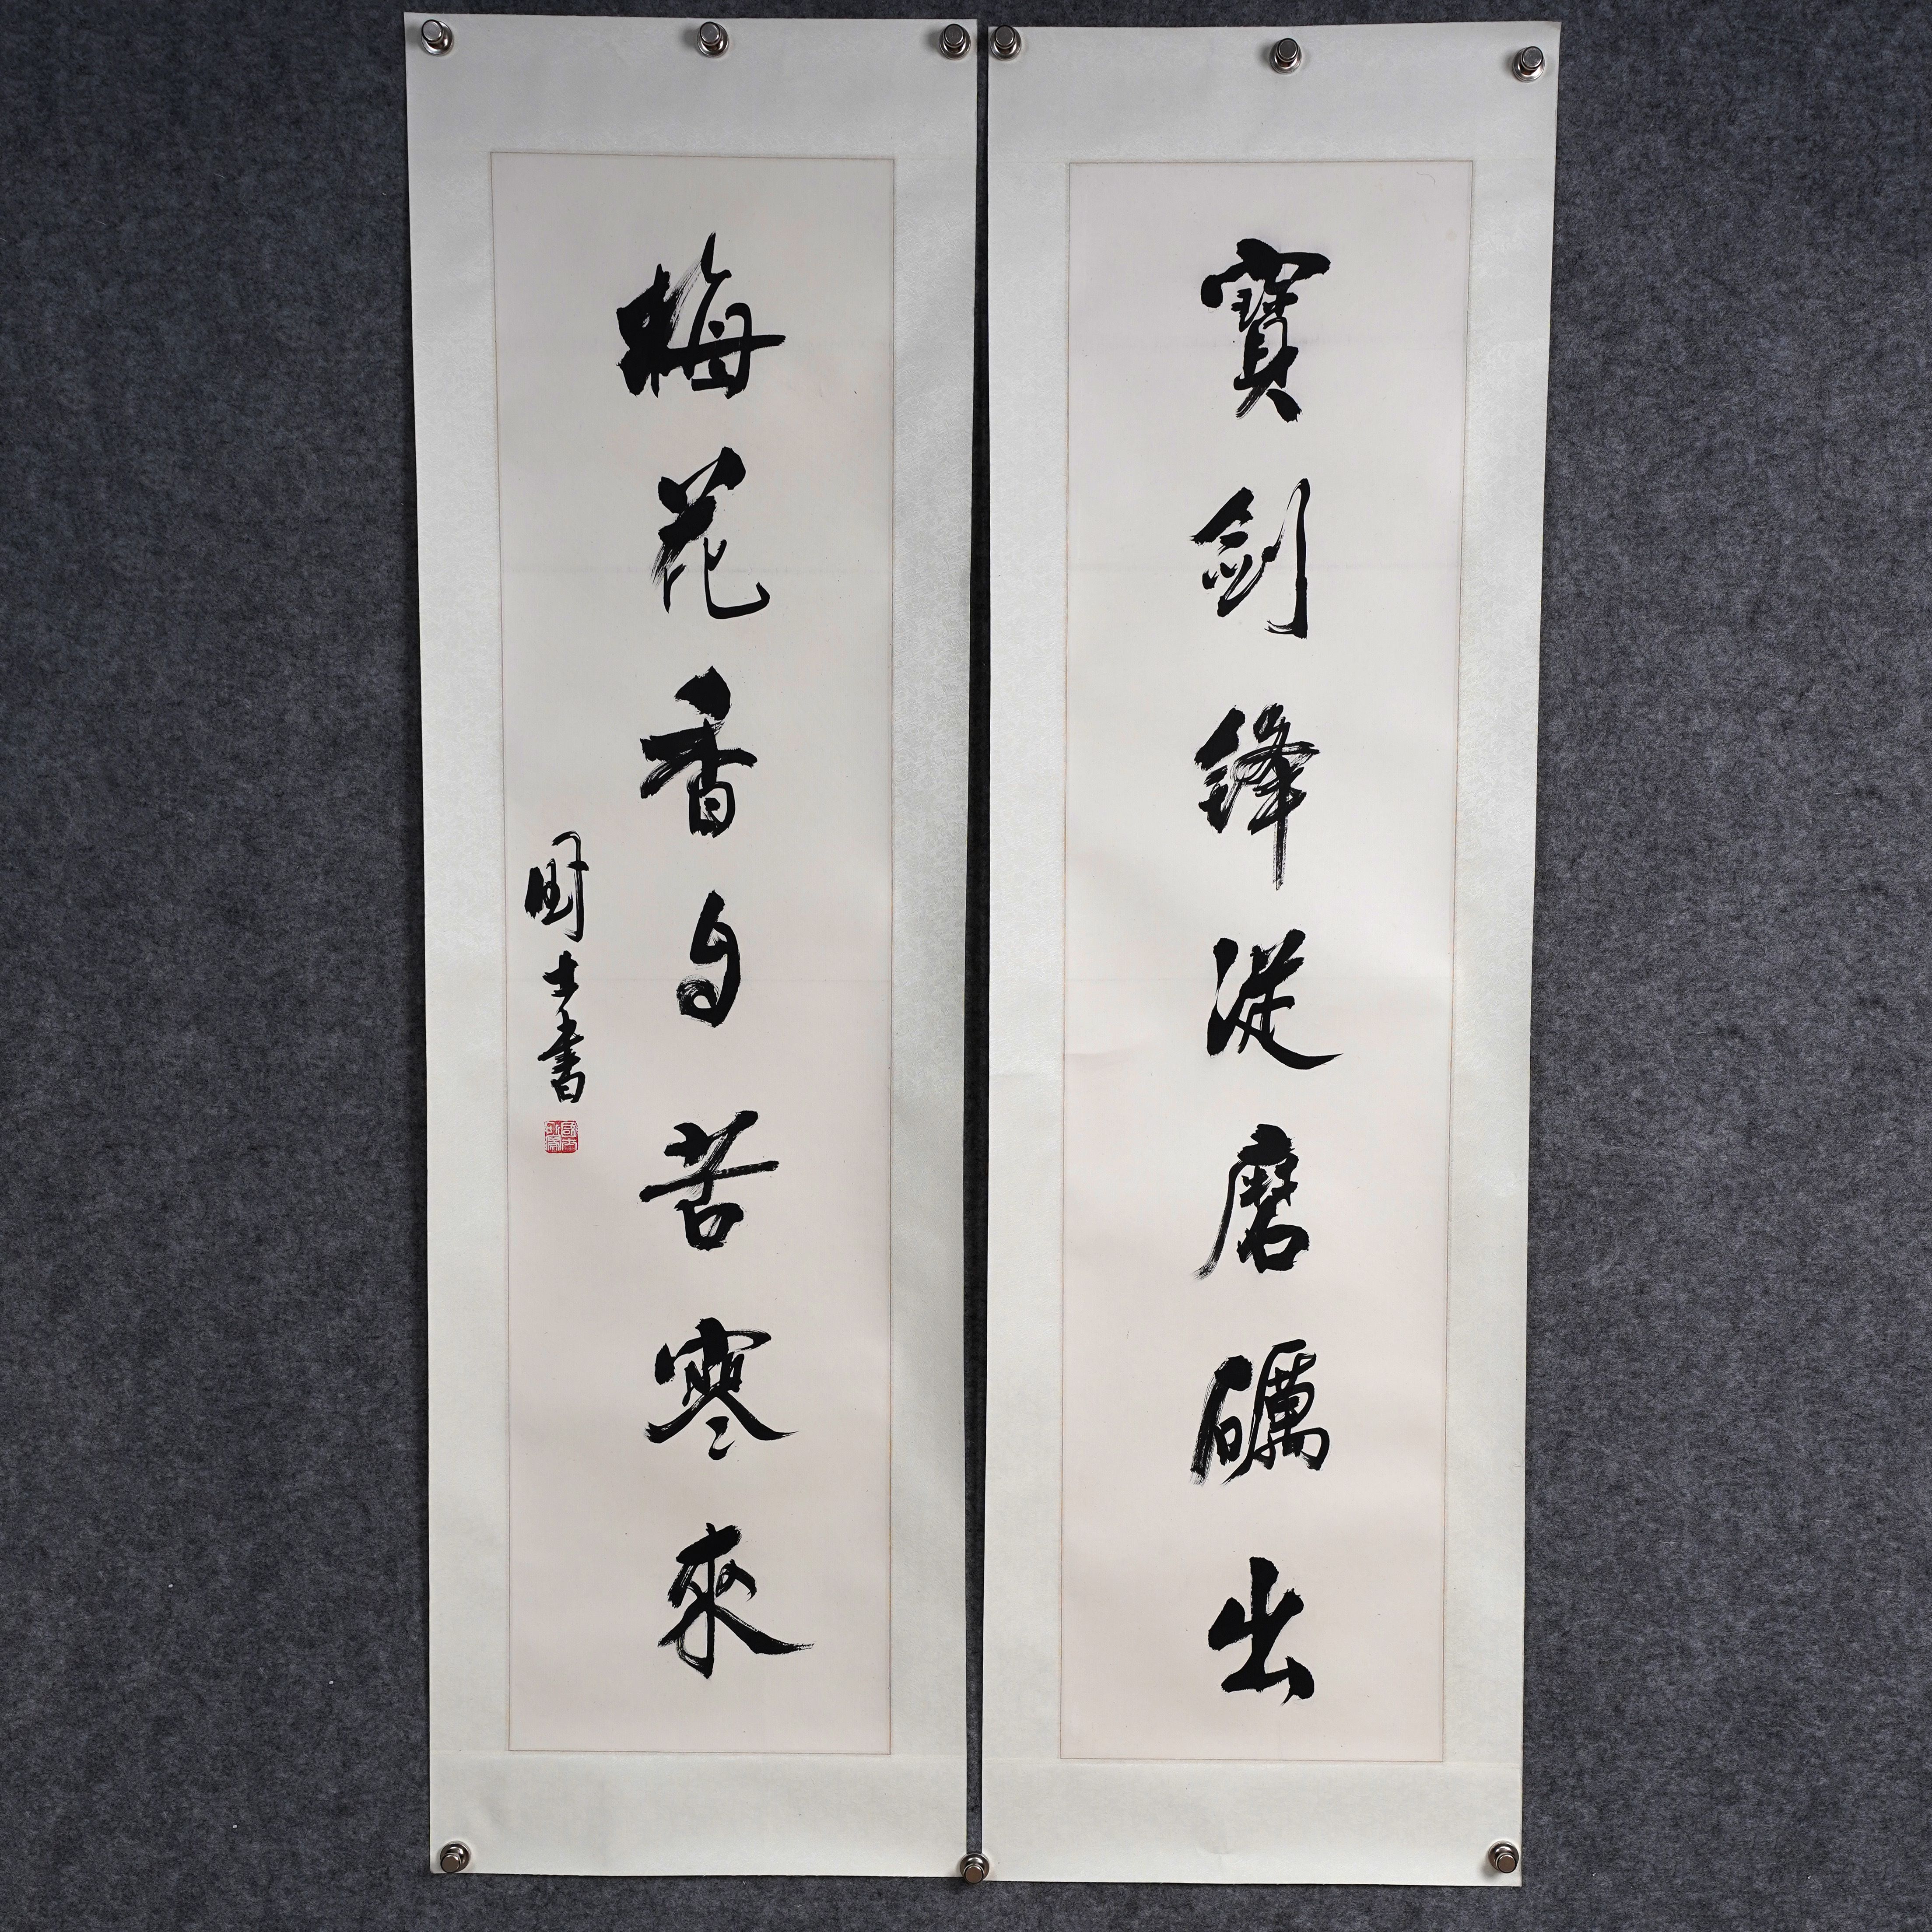 寶劍鋒從磨礪出
梅花香自苦寒來
國士書